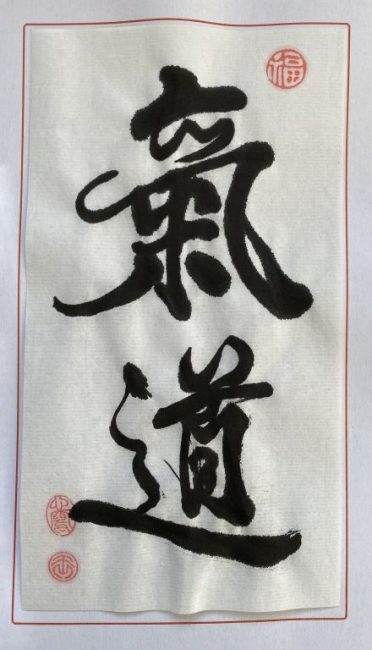 福
氣
道